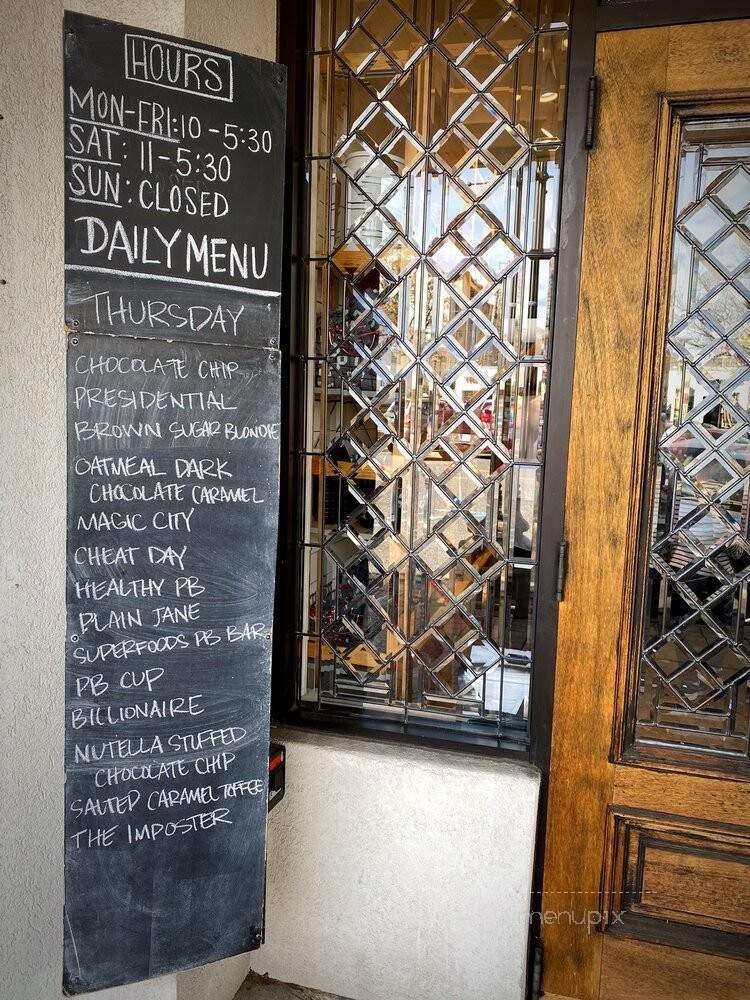 HOURS
MON-FRI:10-5:30
SAT: 11-5:30
SUN: CLOSED
DAILY MENU
THURSDAY
CHOCOLATE CHIP
PRESIDENTIAL
BROWN SUGAR BLONDIE
OATMEAL DARK
CHOCOLATE CARAMEL
MAGIC CITY
CHEAT DAY
HEALTHY PB
PLAIN JANE
SUPERFOODS PB BAR
PB CUP
BILLIONAIRE
NUTELLA STUFFED
CHOCOLATE CHIP
SALTED CARAMEL TOFFEE
THE IMPOSTER
menupix